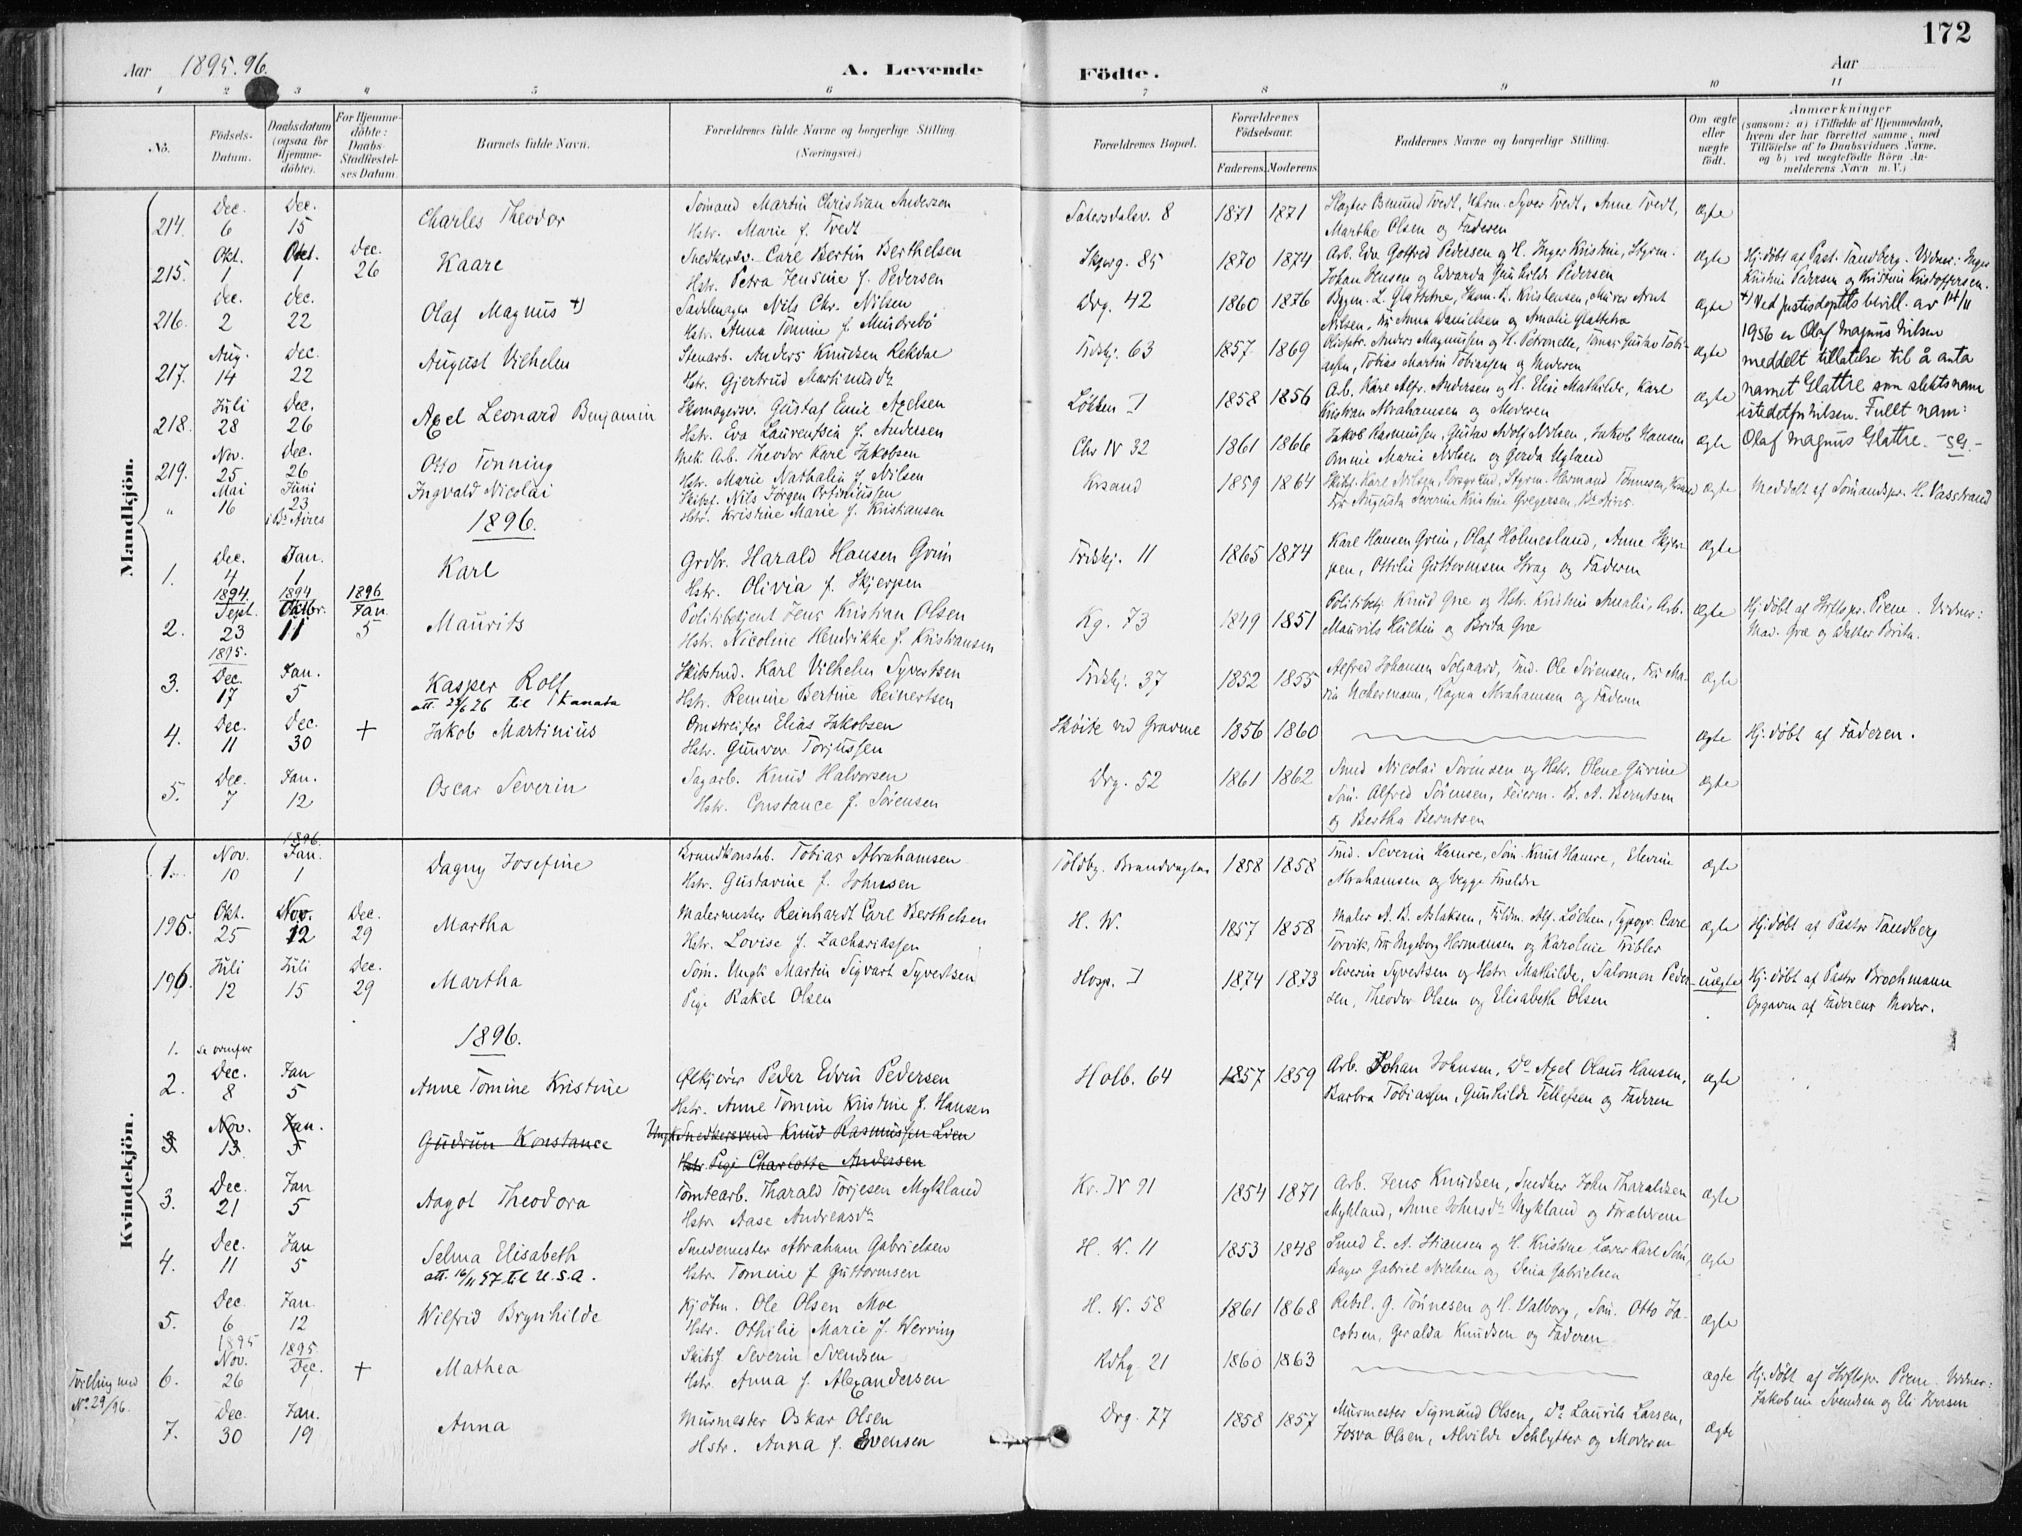 172
Aar 1895.96.
A. Levende Födte.
Aar
1 2 3 4 5 6 7 8 9 10 11
No.
Födsels-Datum.
Daabsdatum (ogsaa for Hjemme-döbte).
For Hjemme-döbte: Daabs-Stadfæstel-ses Datum
Barnets fulde Navn.
Forældrenes fulde Navne og borgerlige Stilling (Næringsvei.)
Forældrenes Bopæl.
Forældrenes Födselsaar.
Faderens. Moderens
Faddernes Navne og borgerlige Stilling.
Om ægte eller uægte födt.
Anmærkninger
(saasom: a) i Tilfælde af Hjemmedaab, hvem der har forrettet samme, med Tilföielse af to Daabsvidners Navne. og b) ved uægtefödte Börn An-melderens Navn m. V.)
Mandkjön.
214. Dec. 6 Dec. 15 Charles Theodor
Sømand Martin Christian Anderson
Hstr. Marie f. Tvedt
Sætersdalsv. 8 1871 1871
Marthe Olsen og Faderen
ægte
215. Okt. 1 Okt. 1 Dec. 26 Kaare
Snedkersv. Carl Bertin Berthelsen
Hstr. Petra Jensine f. Pedersen
Skprg. 85 1870 1874
Arb. Edv. Gotfred Pedersen og H. Inger Kristine, Styrm.
Johan Jensen og Edvarda Gunhilde Pedersen
ægte
Hj. døbt af Past. Tandberg. Vidner: Inger
Kristine Pedersen og Kristine Kristoffersen.
216. Dec. 2 Dec. 22 Olaf Magnus +)
Sadlmager Nils Chr. Nilsen
Hstr. Anna Tomine f. Mundrebø
Drg. 42 1860 1876
Nilsen, Fru Anna Danielsen og Amalie Glattetre
ægte
+) Ved justisdeptets bevill. av 14/11
1956 er Olaf Magnus Nilsen
meddelt tillatelse til å anta
namet Glattre som slektsnam
istedetfor Nilsen. Fullt nam:
Olaf Magnus Glattre.
217. Aug. 14 Dec. 22 August Vilhelm
Stenarb. Anders Knudsen Rekdal
Hstr. Gjertrud Martinusdr.
Tridskj. 63 1857 1869
Tobias Martin Tobiassen og Moderen
ægte
218. Juli 28 Dec. 26 Axel Leonard Benjamin
Skomagersv. Gustaf Emil Axelsen
Hstr. Eva Laurentsia f. Andersen
Løkken I 1858 1856
Arb. Karl Alfr. Andersen og H. Elise Mathilde, Karl
Kristian Abrahamsen og Moderen
ægte
219. Nov. 25 Dec. 26 Otto Tønning
Mek. Arb. Theodor Karl Jakobsen
Hstr. Marie Nathalia f. Nilsen
Chr IV 32 1861 1866
Jakob Rasmussen, Gustav Adolf Nilsen, Jakob Hansen
Annie Marie Nilsen og Gerda Ugland
ægte
" Mai 16 Juni 23 i Bs. Aires Ingvald Nicolai
Skipsf. Nils Jørgen Ortiniussen
Hstr. Kristine Marie f. Kristiansen
Krsand 1859 1864
Fru Augusta Severine Kristine Gregersen, Bs. Aires.
ægte
Meddelt af Sømandspr. H. Vasstrand
1896.
1. Dec. 4 Jan. 1 Karl
Grdbr. Harald Hansen Grim
Hstr. Olivia f. Skjerpen
Tridskj. 11 1865 1874
Karl Hansen Grim, Olaf Holmeslund, Anne Skjer-
pen, Ottilie Guttormsen Strag og Faderen
ægte
2. 1894. Sept. 23 1894 Oktbr. 11 1896 Jan. 5 Maurits
Politibetjent Jens Kristian Olsen
Hstr. Nicoline Hendrikke f. Kristiansen
Kg. 73 1849 1851
Politibetj. Knud Gre og Hstr. Kristine Amalie, Arb.
Maurits Hultin og Brita Gre
ægte
Hj. døbt af Stiftspr. Piene. Vidner:
Mad. Gre og Datter Brita.
3. 1895. Dec. 17 Jan. 5 Kasper Rolf
att. 22/6 26 til Kanada
Skibstmd. Karl Vilhelm Syvertsen
Hstr. Remine Bertine Reinertsen
Tridskj. 37 1852 1855
Alfred Johansen Solgaard, Tmd. Ole Sørensen, Fru Ma-
ria Uchermann, Ragna Abrahamsen og Faderen
ægte
4. Dec. 11 Dec. 30 + Jakob Martinius
Omstreifer Elias Jakobsen
Hstr. Gunvor Torjussen
Skøite ved Gravene 1856 1860
ægte
Hj. døbt af Faderen.
5. Dec. 7 Jan. 12 Oscar Severin
Sagarb. Knud Halvorsen
Hstr. Constance f. Sørensen
Drg. 52 1861 1862
Smed Nicolai Sørensen og Hstr. Olene Gurine
Søm. Alfred Sørensen, Feierm. B. A. Berntsen
og Bertha Berntsen
ægte
Kvindekjön.
1. Nov. 10 1896. Jan. 1 Dagny Josefine
Brandkonstab. Tobias Abrahamsen
Hstr. Gustavine f. Johnsen
Toldbg. Brandvagten 1858 1858
Tmd. Severin Hamre, Søm. Knut Hamre, Elevine
Abrahamsen og begge Forældre
ægte
195. Okt. 25 Nov. 12 Dec. 29 Martha
Malermester Reinhardt Carl Berthelsen
Hstr. Lovise f. Zachariassen
H. W. 1857 1858
Maler A. B. Aslaksen, Fuldm. Alf. Løchen, Typogr. Carl
Torvik, Fru Ingeborg Hermansen og Karoline Fibler
ægte
Hj. døbt af Pastor Tandberg
196. Juli 12 Juli 15 Dec. 29 Martha
Søm. Ungk. Martin Sigvart Syvertsen
Pige Rakel Olsen
Hosp. I 1874 1873
Severin Syvertsen og Hstr. Mathilde, Salomon Peder-
sen, Theodor Olsen og Elisabeth Olsen
uægte
Hj. døbt af Pastor Brochmann
Opgaven af Faderens Moder.
1896.
1. se ovenfor
2. Dec. 8 Jan 5 Anne Tomine Kristine
Ølkjører Peder Edvin Pedersen
Hstr. Anne Tomine Kristine f. Hansen
Holb. 64 1857 1859
Arb. Johan Johnsen, Do Axel Olaus Hansen,
Barbra Tobiassen, Gunhilde Tellefsen og Faderen
ægte
3 Nov. 13 Jan. 5 Gudrun Konstance
Ungk. Snedkersvend Knud Rasmussen Lien
Hstr. Pige Charlotte Andersen
3. Dec. 21 Jan 5 Aagot Theodora
Tomtearb. Tharald Torjesen Mykland
Hstr. Aase Andreasdr.
Kr. IV 91 1854 1871
Arb. Jens Knudsen, Snedker John Tharaldsen
Mykland, Anne Johnsdr. Mykland og Forældrene
ægte
4. Dec. 11 Jan 5 Selma Elisabeth
att. 16/11 57 til U.S.A.
Smedemester Abraham Gabrielsen
Hstr. Tomine f Guttormsen
H. W. 11 1853 1848
Smed E. A. Stiansen og H. Kristine Lærer Karl Søm,
Bager Gabriel Nielsen og Dena Gabrielsen
ægte
5. Dec. 6 Jan. 12 Wilfrid Brynhilde
Kjøbm. Ole Olsen Moe
Hstr. Othilie Marie f. Werring
H. W. 58 1861 1868
Rebsl. G. Tønnesen og H. Valborg, Søm. Otto Ja-
cobsen, Geralda Knudsen og Faderen
ægte
Tvilling med No. 29/96.
6. 1895 Nov. 26 1895 Dec. 1 + Mathea
Skibsf. Severin Svendsen
Hstr. Anna f. Alexandersen
Rdhg. 21 1860 1863
ægte
Hj. døbt af Stiftspr. Piene. Vidner:
Jakobine Svendsen og Eli Iversen
7. Dec. 30 Jan. 19 Anna
Murmester Oskar Olsen
Hstr. Anna f. Evensen
Drg. 77 1858 1857
Murmester Sigmund Olsen, Do Laurits Larsen,
Josva Olsen, Alvilde Schlytter og Moderen
ægte